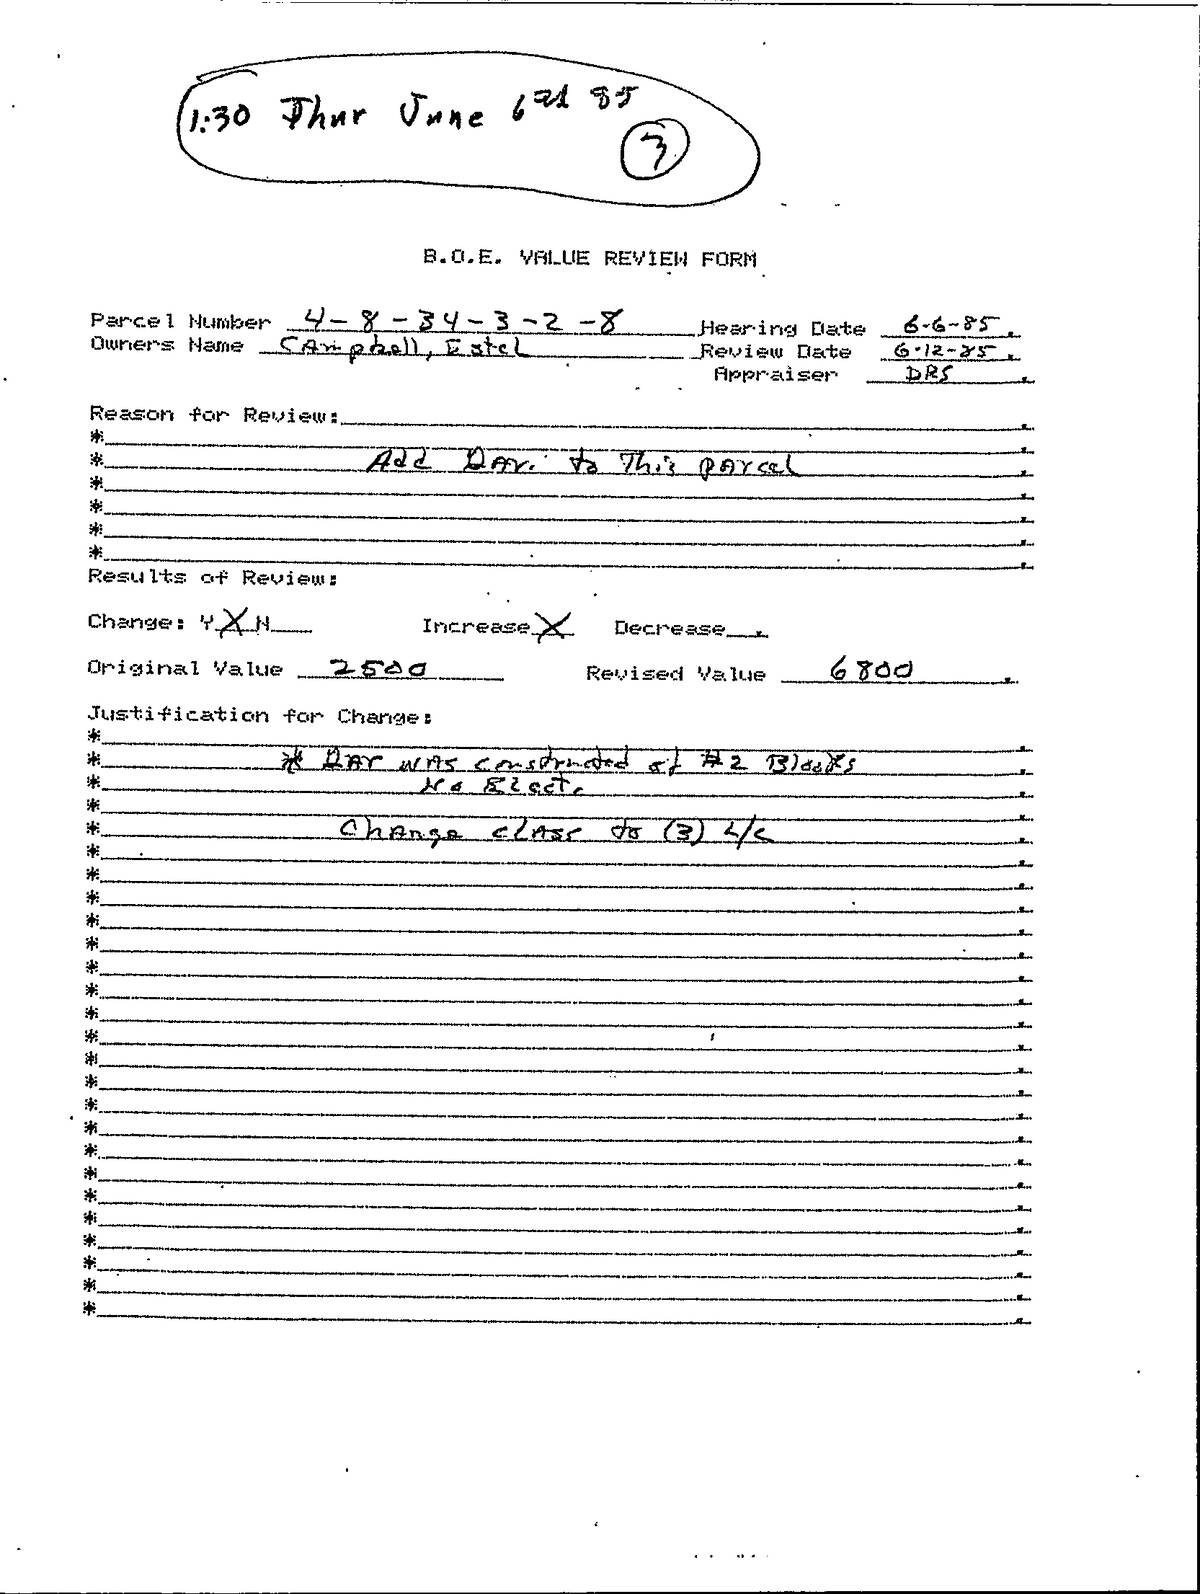 1:30 Thur June 6 85
3
B.O.E. VALUE REVIEW FORM
Parcel Number 4-8-34-3-2-8 Hearing Date 6-6-85.
Owners Name Campbell, Estel Review Date 6-12-85.
Appraiser DRS.
Reason for Review:
*
* Add to This parcel
*
*
*
*
Results of Review:
Change: Y X N Increase X Decrease.
Original Value 2500 Revised Value 6800.
Justification for Change:
*
* * was constructed of #2 Blocks
* No Elect.
*
* Change class to (3) L/C
*
*
*
*
*
*
*
*
*
*
*
*
*
*
*
*
*
*
*
*
*